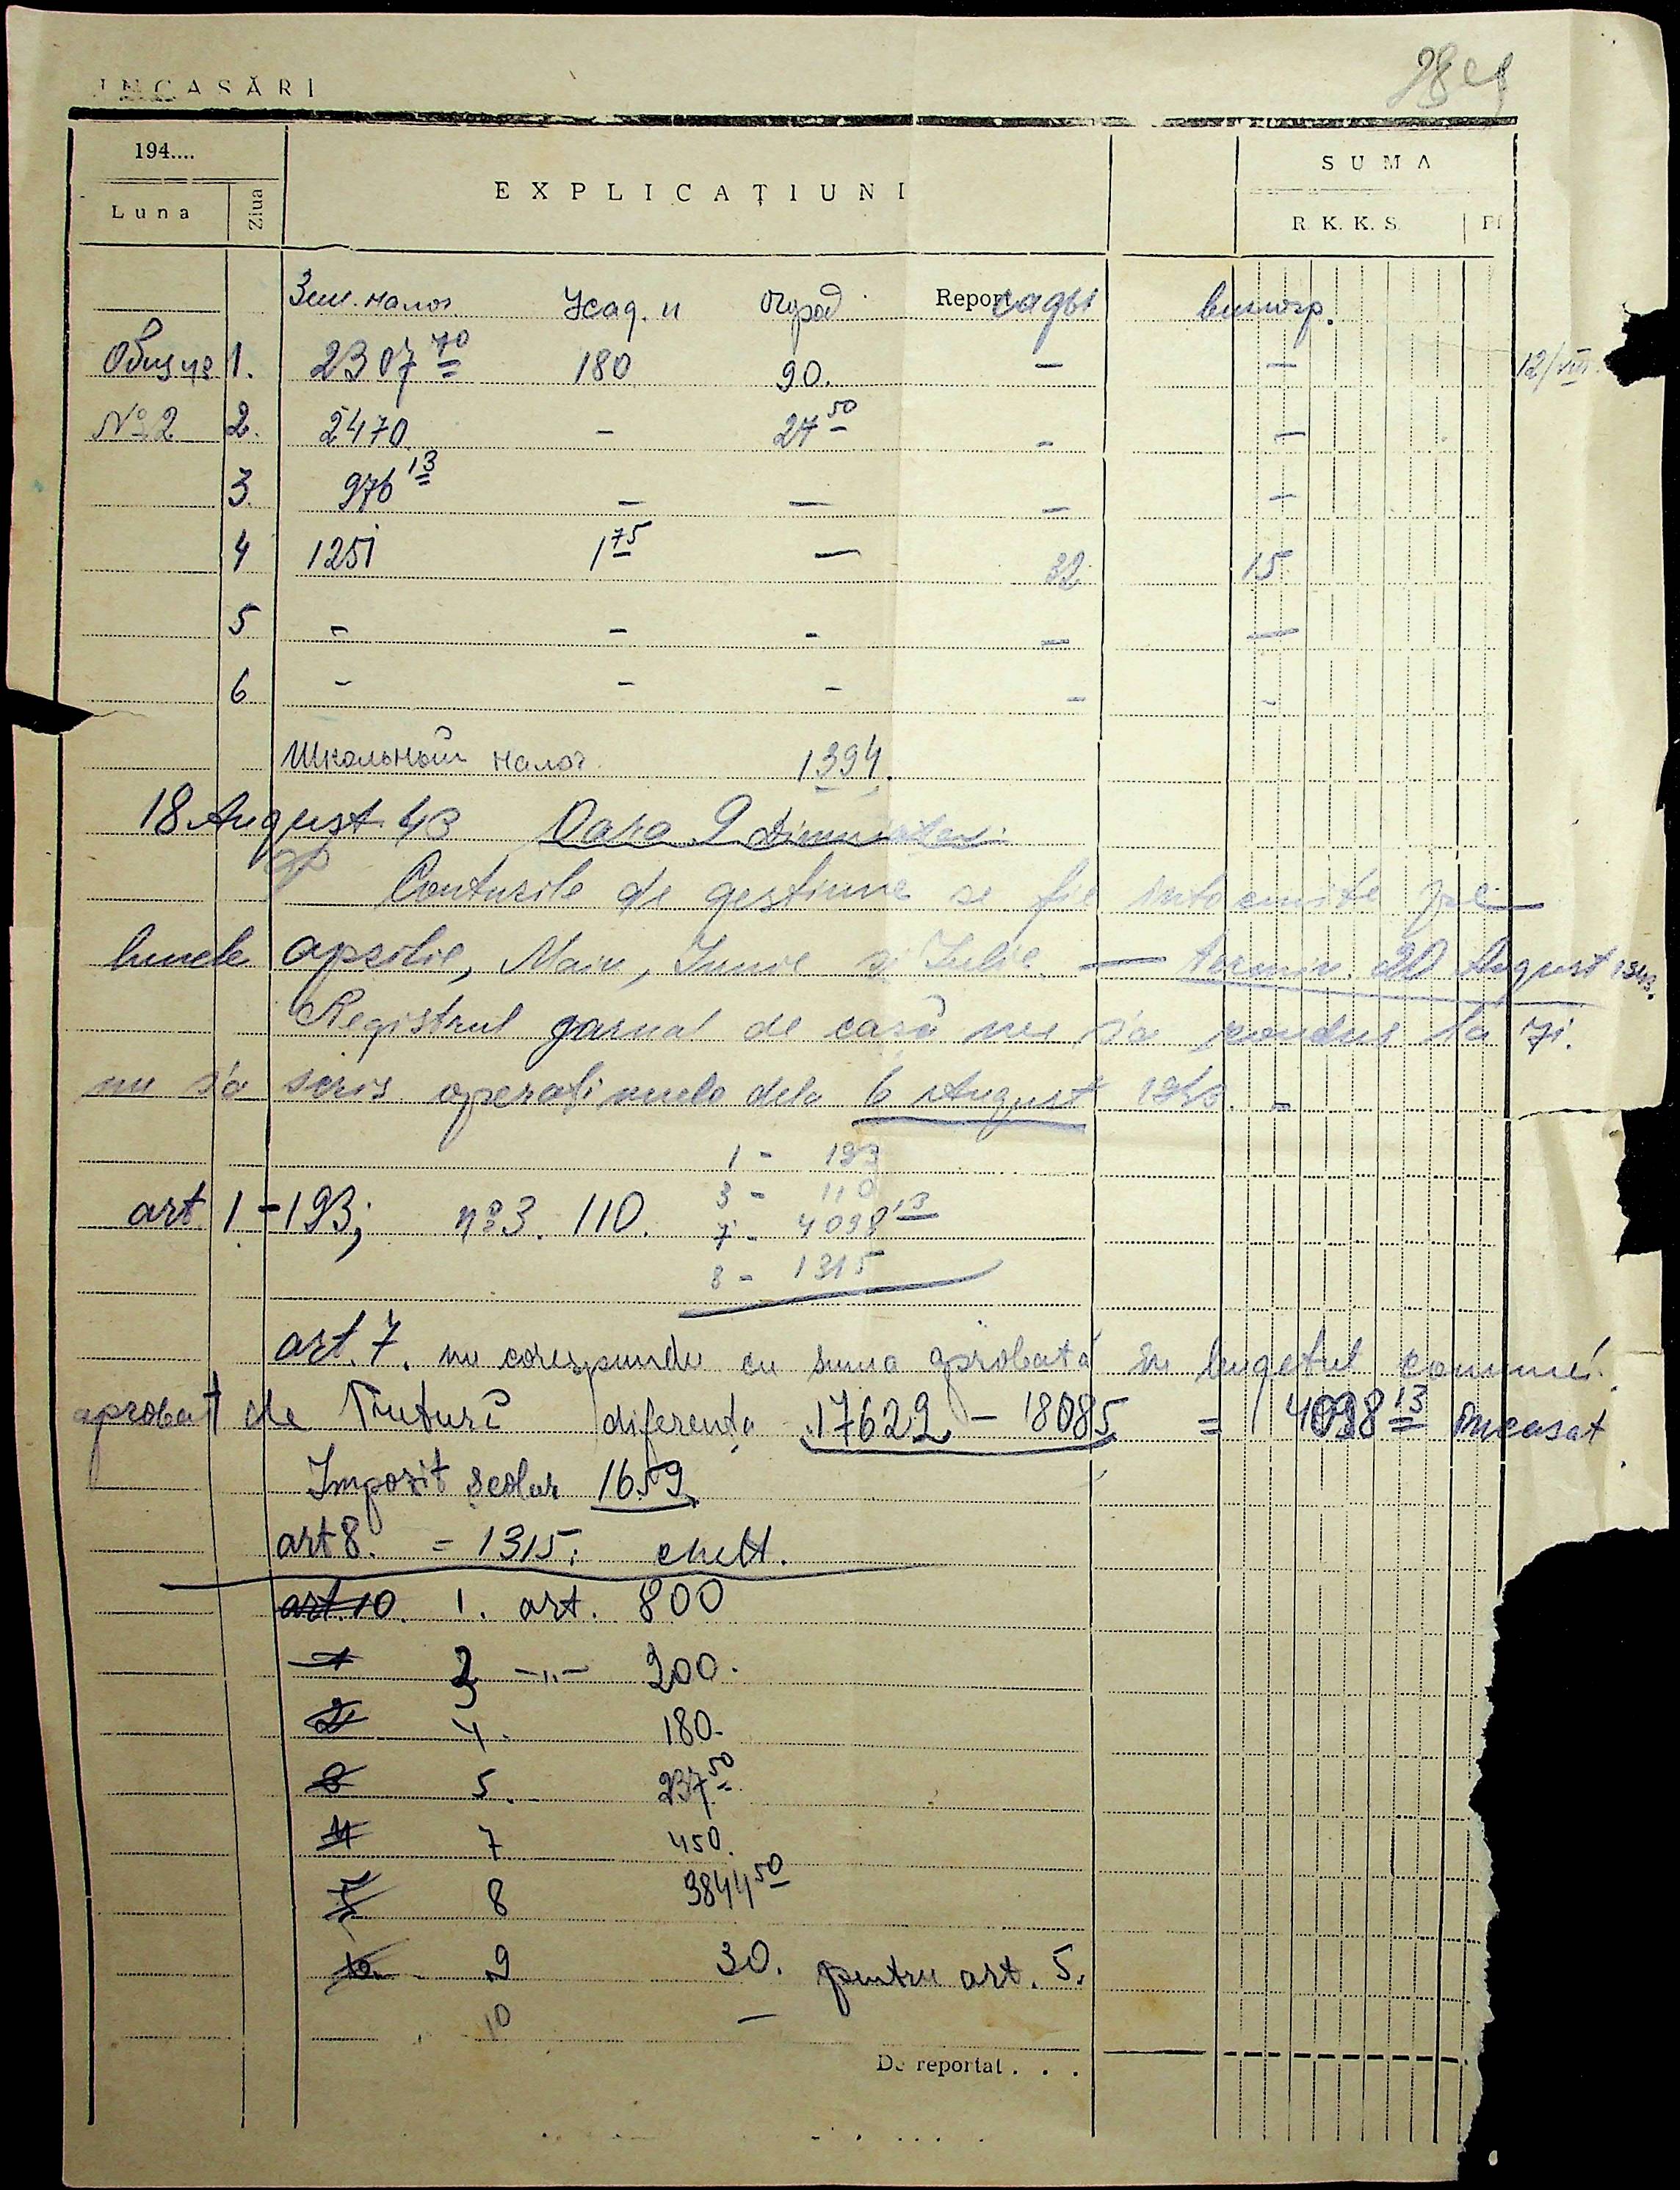 INCASĂRI
194....
Luna
Ziua
EXPLICAȚIUNI
SUMA
R. K. K. S.
Зем. налог Усад. и огрод Report сады виногр.
1. 2307 70 180 90. — — 12/VIII.
№ 2 2. 2470 — 24 50 — —
3. 976 13 — — — —
4 1251 1 75 — 32 15
5 - - - — —
6 - - - - -
Школьный налог 1394.
18 August 43 Oara 9 dimineaței
Conturile de gestiune se fie întocmite pe
lunele aprilie, Maiu, Iunie și Iulie — termin 20 August 1943.
Registrul jurnal de casă nu s'a condus la zi.
nu s'a scris operațiunele dela 6 August 1943. —
1 - 193
3 - 110
art. 1 - 193; nº 3. 110.
7 - 4098 13
8 - 1315
art. 7. nu corespunde cu suma aprobată în bugetul comunei
aprobat de diferența 17622 - 18085 = 4098 13 încasat
Impozit școlar 1659
art 8. = 1315; chelt.
art. 10. 1. art. 800
1 3 -"- 200.
2 4. 180.
3 5. 237 50
4 7 450.
8 3844 50
9 30. pentru art. 5.
10 —
De reportat . . .